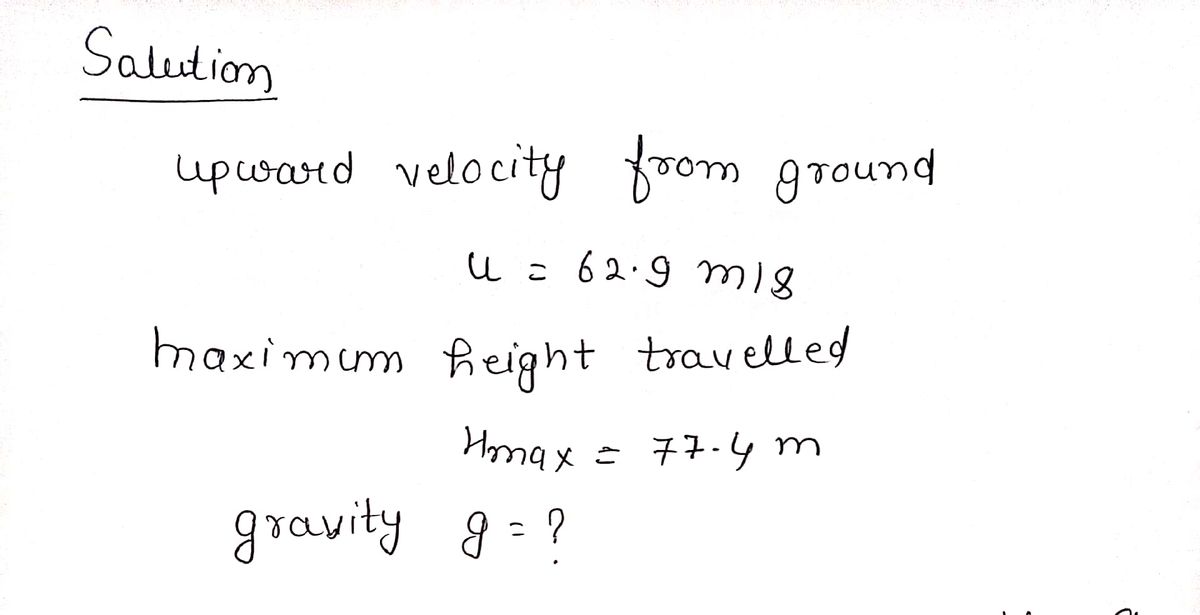 Salution
upward velocity from ground
u = 62.9 m/s
maximum height travelled
Hmax = 77.4 m
gravity g = ?